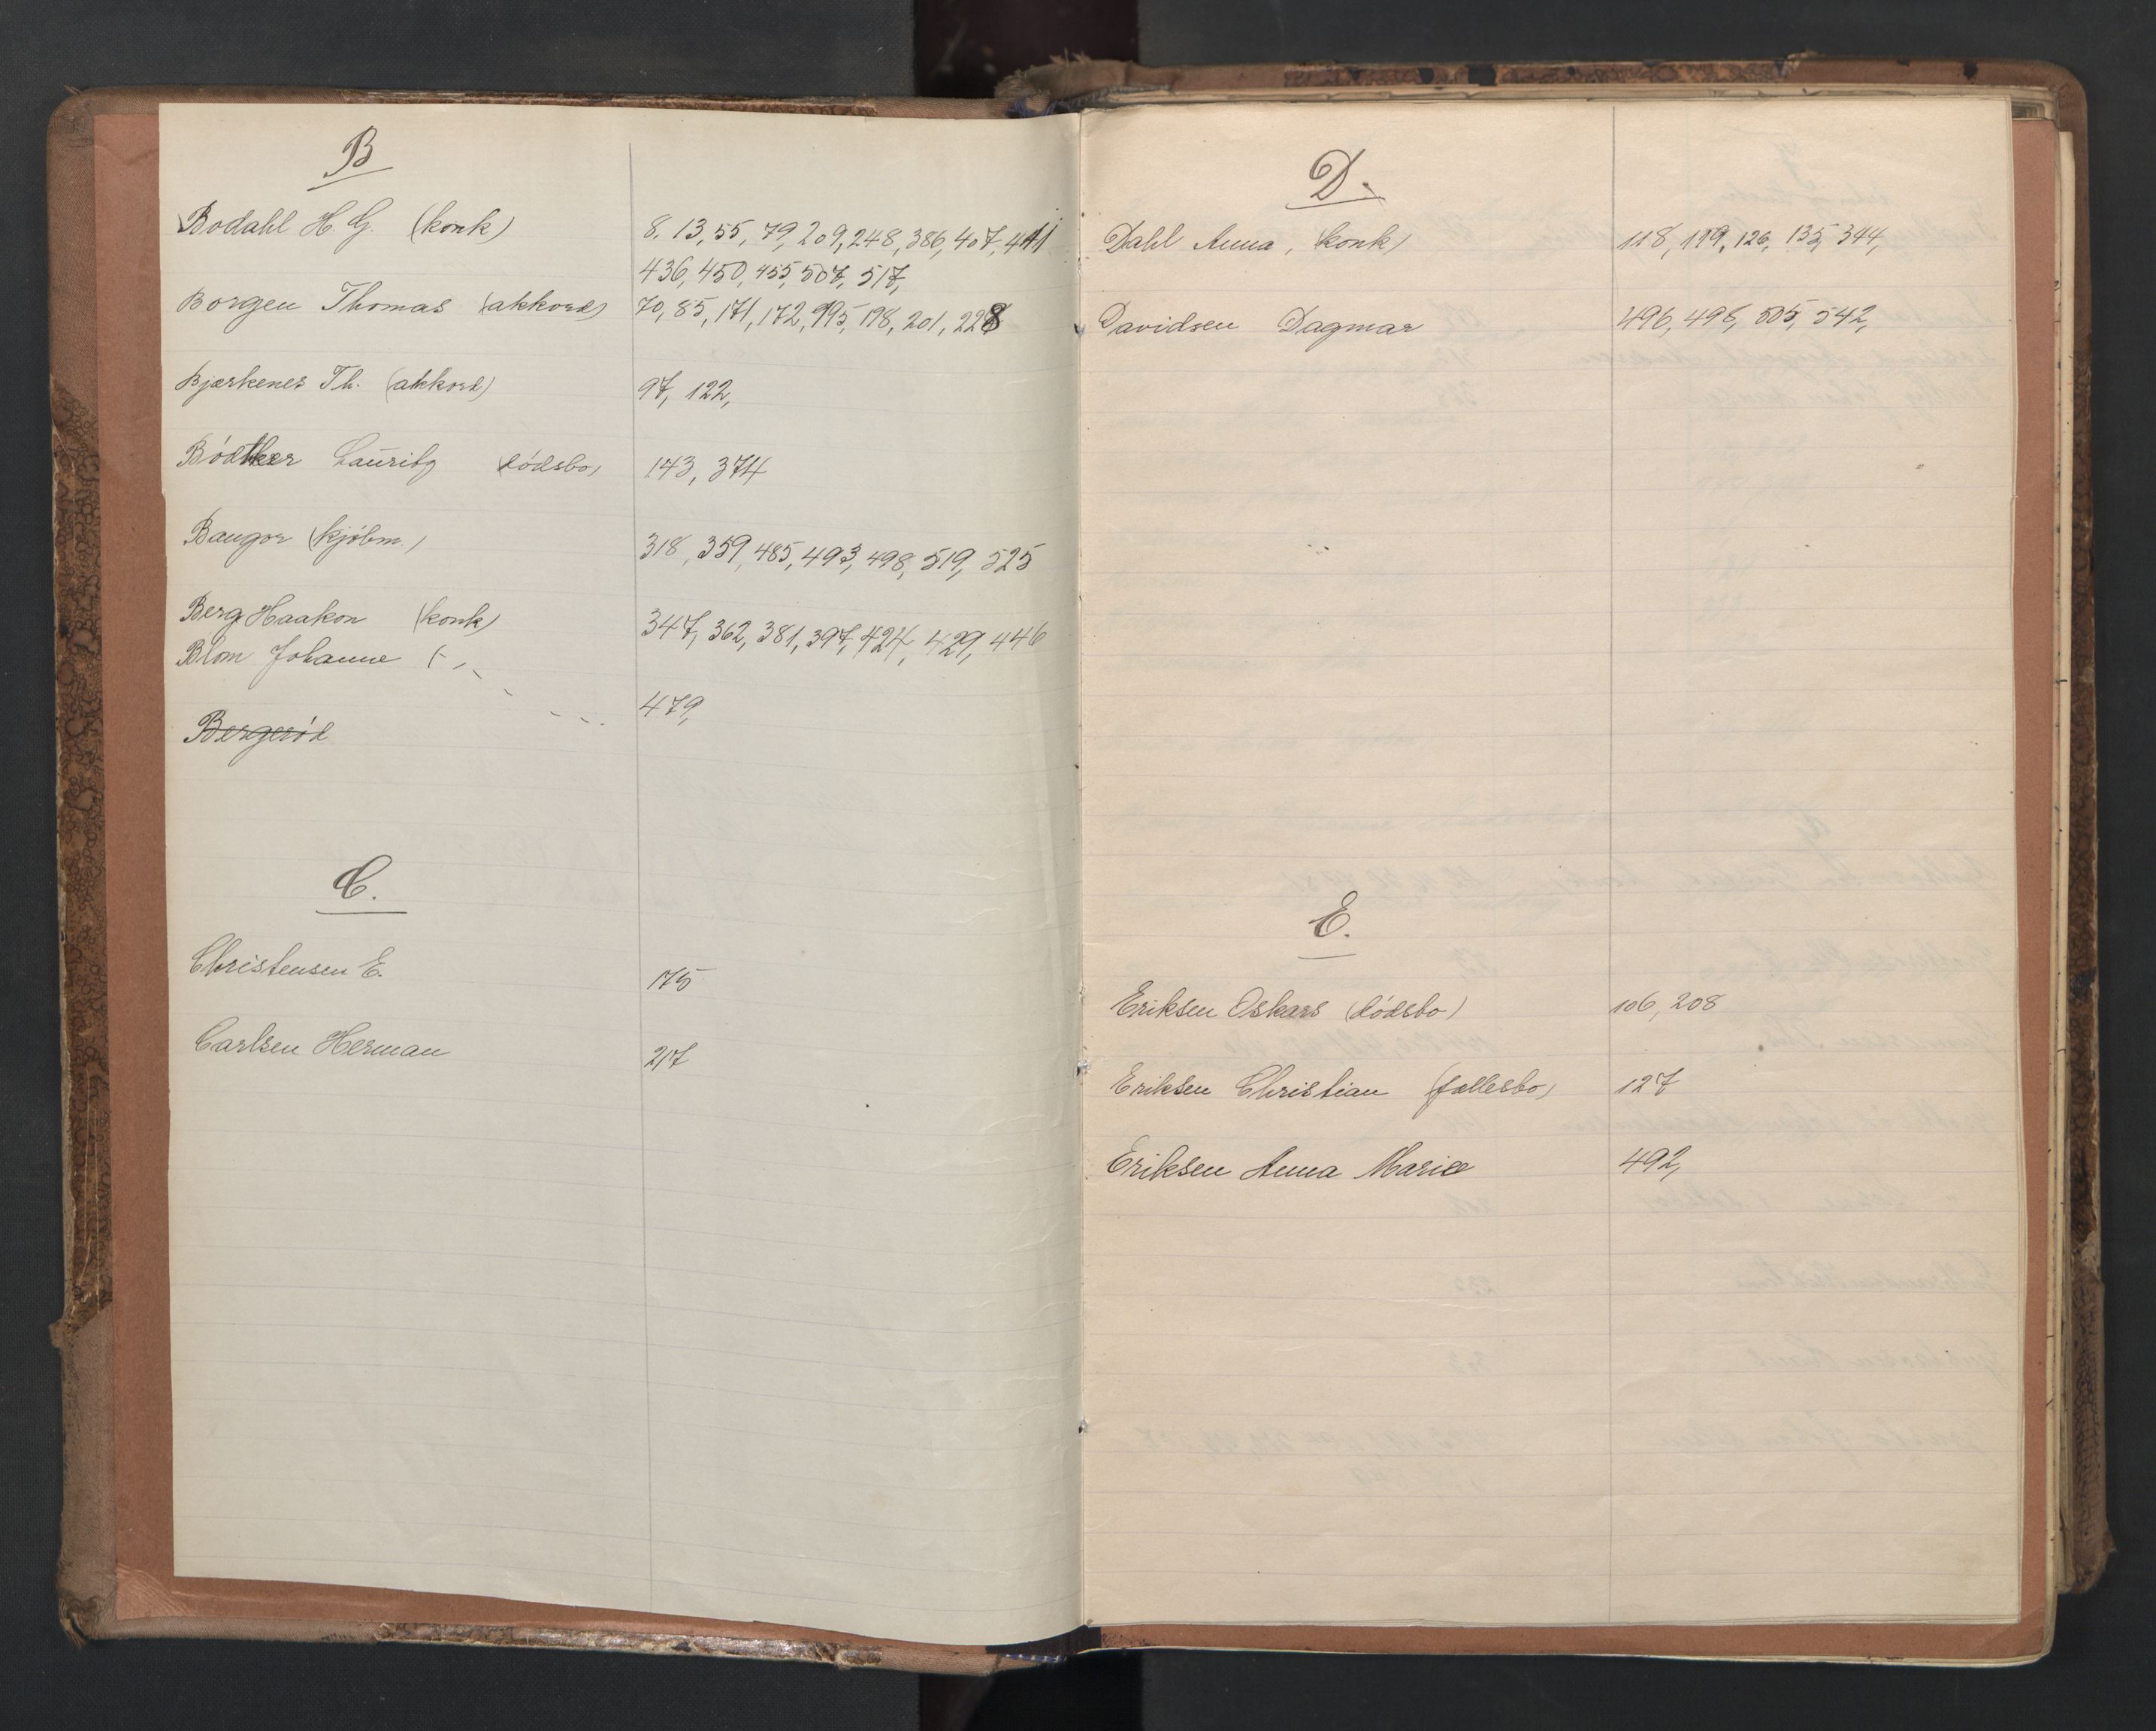 B
Bodahl H. G. (konk) 8, 13, 55, 79, 209, 248, 386, 407, 411
436, 450, 455, 507, 517,
Borgen Thomas (akkord) 70, 85, 171, 172, 195, 198, 201, 228
Bjerkenes Th. (akkord) 97, 122,
Bödtker Lauritz (dödsbo) 143, 374
Baugor (kjöbm.) 318, 359, 485, 493, 498, 519, 525
Berg Haakon (konk) 347, 362, 381, 397, 424, 429, 446
Blom Johanne ( - , 479,
Bergeröd
C.
Christensen E. 175
Carlsen Herman 217
D.
Dahl Anna, (konk) 118, 119, 126, 135, 344,
Davidsen Dagmar 496, 498, 505, 542,
E.
Eriksen Oskars (dödsbo) 106, 208
Eriksen Christian (fællesbo) 127
Eriksen Anna Marie 492,